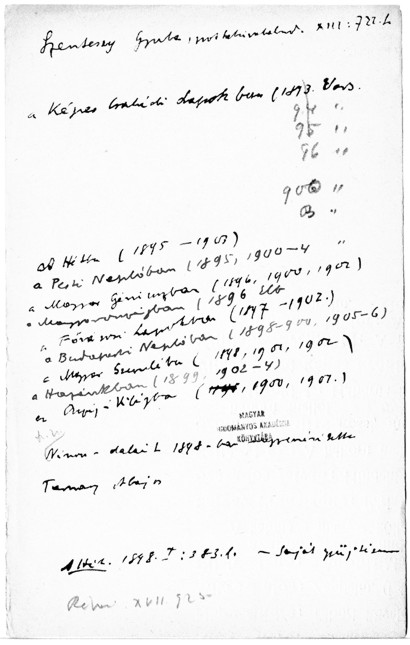 Szentessy Gyula, XIII : 722. l.
a Képes Családi Lapokban (1893. Vers.
94 "
95 "
96 "
900 "
03 "
A Hétbe (1895 – 1903)
a Pesti Naplóban (1895, 1900–4 "
a Magyar Géniuszban (1896, 1900, 1902)
a Magyarországban (1896
a Fővárosi Lapokban (1897 – 1902.)
a Budapesti Naplóban (1898–900, 1905–6)
a Magyar Szemlébe (1898, 1901, 1902)
a Hazánkban (1899, 1902–4)
az Ország-Világba (1900, 1901.)
MAGYAR
TUDOMÁNYOS AKADÉMIA
KÖNYVTÁRA
Ninon-dalait 1898-ban
Tarnay Alajos
1898. I : 383. l. – Saját gyűjtésem
XVII 925